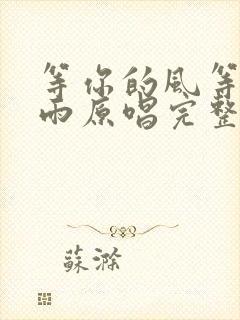 等你的风等
雨原唱完整
蘇滁